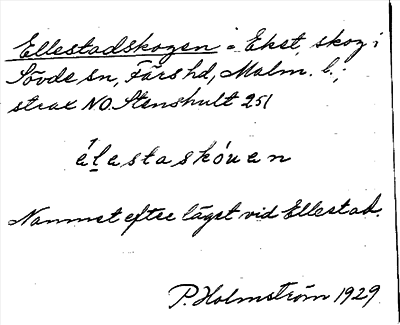 Ellestadskogen = Ekst. skog i
Sövde sn, Färs hd, Malm. l.;
strax NO. Stenshult 251
élestaskóuen
Namnet efter läget vid Ellestad.
P. Holmström 1929